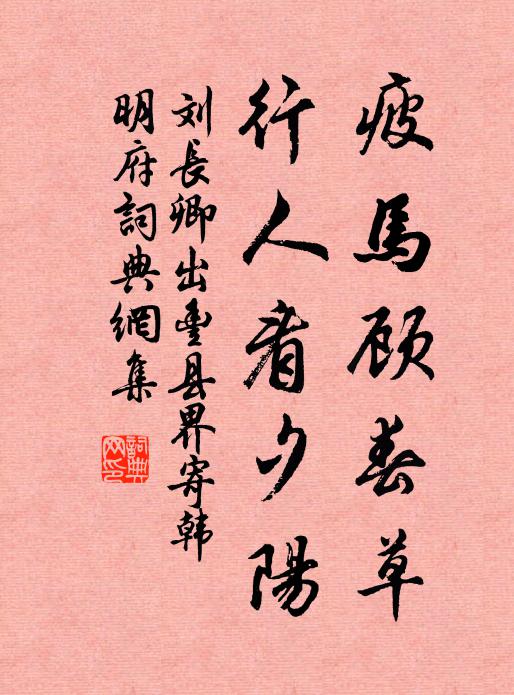 疲馬顾春草
行人看夕陽
刘長卿出豊县界寄韩
明府詞典網集
詞典网印